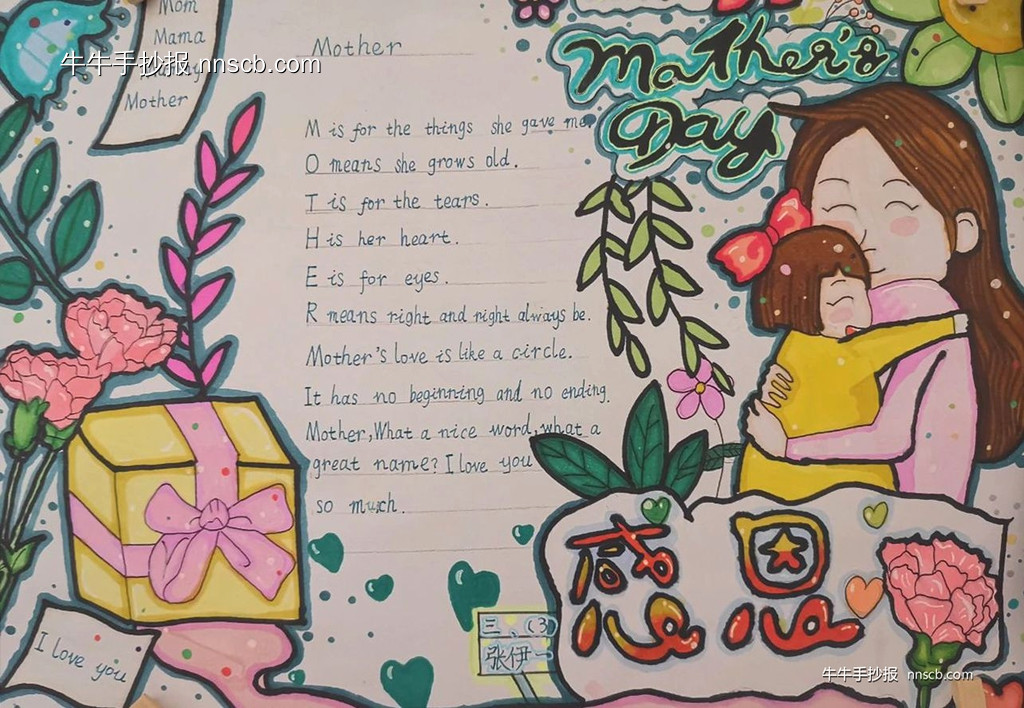 Mom
Mama
Mother
I love you
牛牛手抄报 nnscb.com
Mother's
Day
Mother
M is for the things she gave me.
O means she grows old.
T is for the tears.
H is her heart.
E is for eyes.
R means right and right always be.
Mother's love is like a circle.
It has no beginning and no ending.
Mother,What a nice word,what a
great name?I love you
so much.
感恩
三、(3)
张伊一
牛牛手抄报 nnscb.com